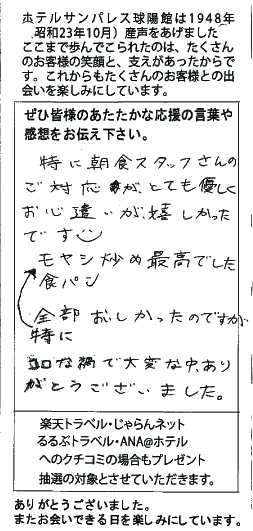 ホテルサンパレス球陽館は1948年
(昭和23年10月)産声をあげました
ここまで歩んでこられたのは、たくさん
のお客様の笑顔と、支えがあったからで
す。これからもたくさんのお客様との出
会いを楽しみにしています。
ぜひ皆様のあたたかな応援の言葉や
感想をお伝え下さい。
特に朝食スタッフさんの
ご対応が、とても優しく
お心遣いが、嬉しかった
です
モヤシ炒め最高でした
食パン
全部おいしかったのですが
特に
コロな禍で大変な中、あり
がとうございました。
楽天トラベル・じゃらんネット
るるぶトラベル・ANA@ホテル
へのクチコミの場合もプレゼント
抽選の対象とさせていただきます。
ありがとうございました。
またお会いできる日を楽しみにしています。